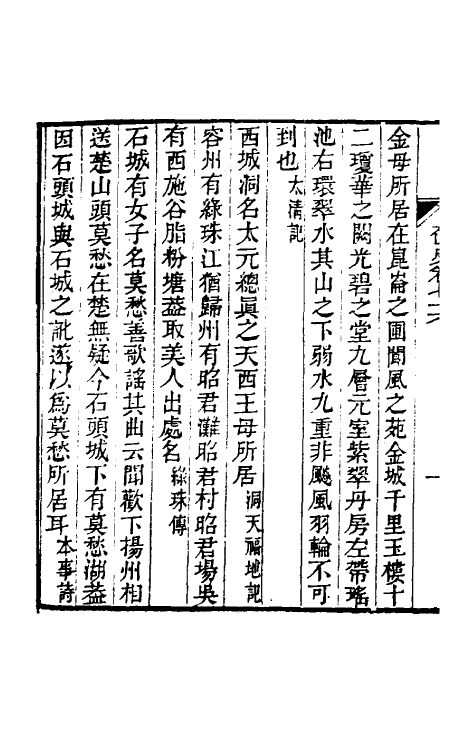 金母所居在崑崙之圃閬風之苑金城千里玉樓十
二瓊華之闕光碧之堂九層元室紫翠丹房左帶瑤
池右環翠水其山之下弱水九重非飈風羽輪不可
到也太淸記
西城洞名太元總眞之天西王母所居洞天福地記
容州有綠珠江猶歸州有昭君灘昭君村昭君場吳
有西施谷脂粉塘葢取美人出處名綠珠傳
石城有女子名莫愁善歌謠其曲云聞歡下揚州相
送楚山頭莫愁在楚無疑今石頭城下有莫愁湖葢
因石頭城與石城之訛遂以爲莫愁所居耳本事詩